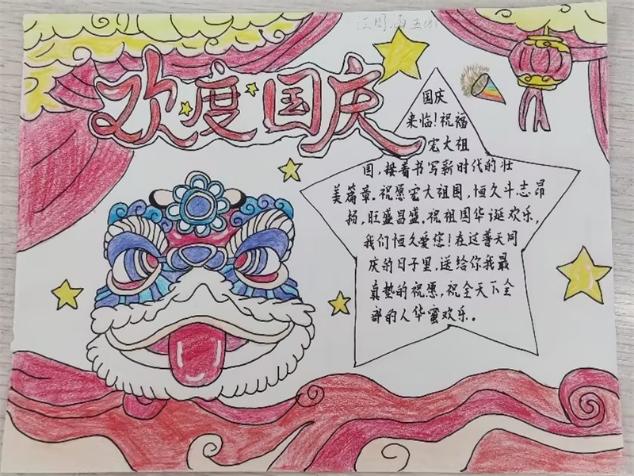 欢度国庆
国庆
来临!祝福
宏大祖
国,接着书写新时代的壮
美篇章。祝愿宏大祖国,恒久斗志昂
扬,旺盛昌盛,祝祖国华诞欢乐,
我们恒久爱您!在这普天同
庆的日子里,送给你我最
真挚的祝愿,祝全天下全
部的人华蜜欢乐。